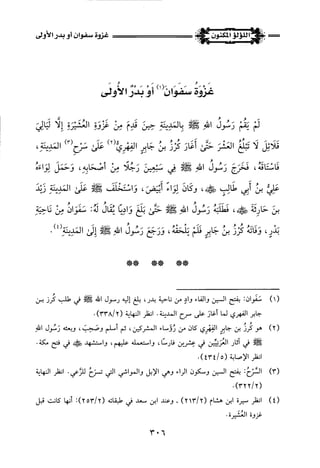 اللؤلؤ المكنون
غزوة سفوان أو بدر الأولى
غَزْوَةُ سَفَوَانَ(١) أَوْ بَدْرُ الأُولَى
لَمْ يَقُمْ رَسُولُ اللهِ ﷺ بِالمَدِينَةِ حِينَ قَدِمَ مِنْ غَزْوَةِ العُشَيْرَةِ إِلَّا لَيَالِيَ
قَلَائِلَ لَا تَبْلُغُ العَشْرَ حَتَّى أَغَارَ كُرْزُ بنُ جَابِرٍ الفِهْرِيُّ(٢) عَلَى سَرْحِ(٣) المَدِينَةِ،
فَاسْتَاقَهُ، فَخَرَجَ رَسُولُ اللهِ ﷺ فِي سَبْعِينَ رَجُلًا مِنْ أَصْحَابِهِ، وَحَمَلَ لِوَاءَهُ
عَلِيُّ بنُ أَبِي طَالِبٍ ﵁، وكَانَ لِوَاءً أَبْيَضَ، وَاسْتَخْلَفَ ﷺ عَلَى المَدِينَةِ زَيْدَ
بنَ حَارِثَةَ ﵁، فَطَلَبَهُ رَسُولُ اللهِ ﷺ حَتَّى بَلَغَ وَادِيًا يُقَالُ لَهُ: سَفَوَانُ مِنْ نَاحِيَةِ
بَدْرٍ، وَفَاتَهُ كُرْزُ بنُ جَابِرٍ فَلَمْ يَلْحَقْهُ، وَرَجَعَ رَسُولُ اللهِ ﷺ إِلَى المَدِينَةِ(٤).
** ** **
(١) سَفَوَان: بفتح السين والفاء وادٍ من ناحية بدر، بلغ إليه رسول الله ﷺ في طلب كرز بن
جابر الفهري لما أغار على سرح المدينة. انظر النهاية (٣٣٨/٢).
(٢) هو كُرز بن جابر الفِهْرِي كان من رُؤساء المشركين، ثم أسلم وصَحِبَ، وبعثه رسُول اللهِ
ﷺ في آثار العُرَنِيِّينَ في عِشرين فارسًا، واستعمله عليهم، واستشهد ﵁ في فتح مكة.
انظر الإصابة (٤٣٤/٥).
(٣) السَّرْحُ: بفتح السين وسكون الراء وهي الإبل والمواشي التي تسرَحُ للرَّعي. انظر النهاية
(٣٢٢/٢).
(٤) انظر سيرة ابن هشام (٢١٣/٢)، وعند ابن سعد في طبقاته (٢٥٣/٢): أنها كانت قبل
غزوة العُشَيرة.
٣٠٦